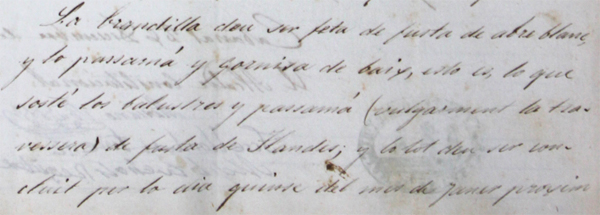 La brandilla deu ser feta de fusta de abre blanc,
y lo passamá y gornisa de baix, esto es, lo que
sosté los balustres y passamá (vulgarment la tra-
vessera) de fusta de Flandes; y tot deu ser con-
cluit per lo dia quinse del mes de Janer proxim